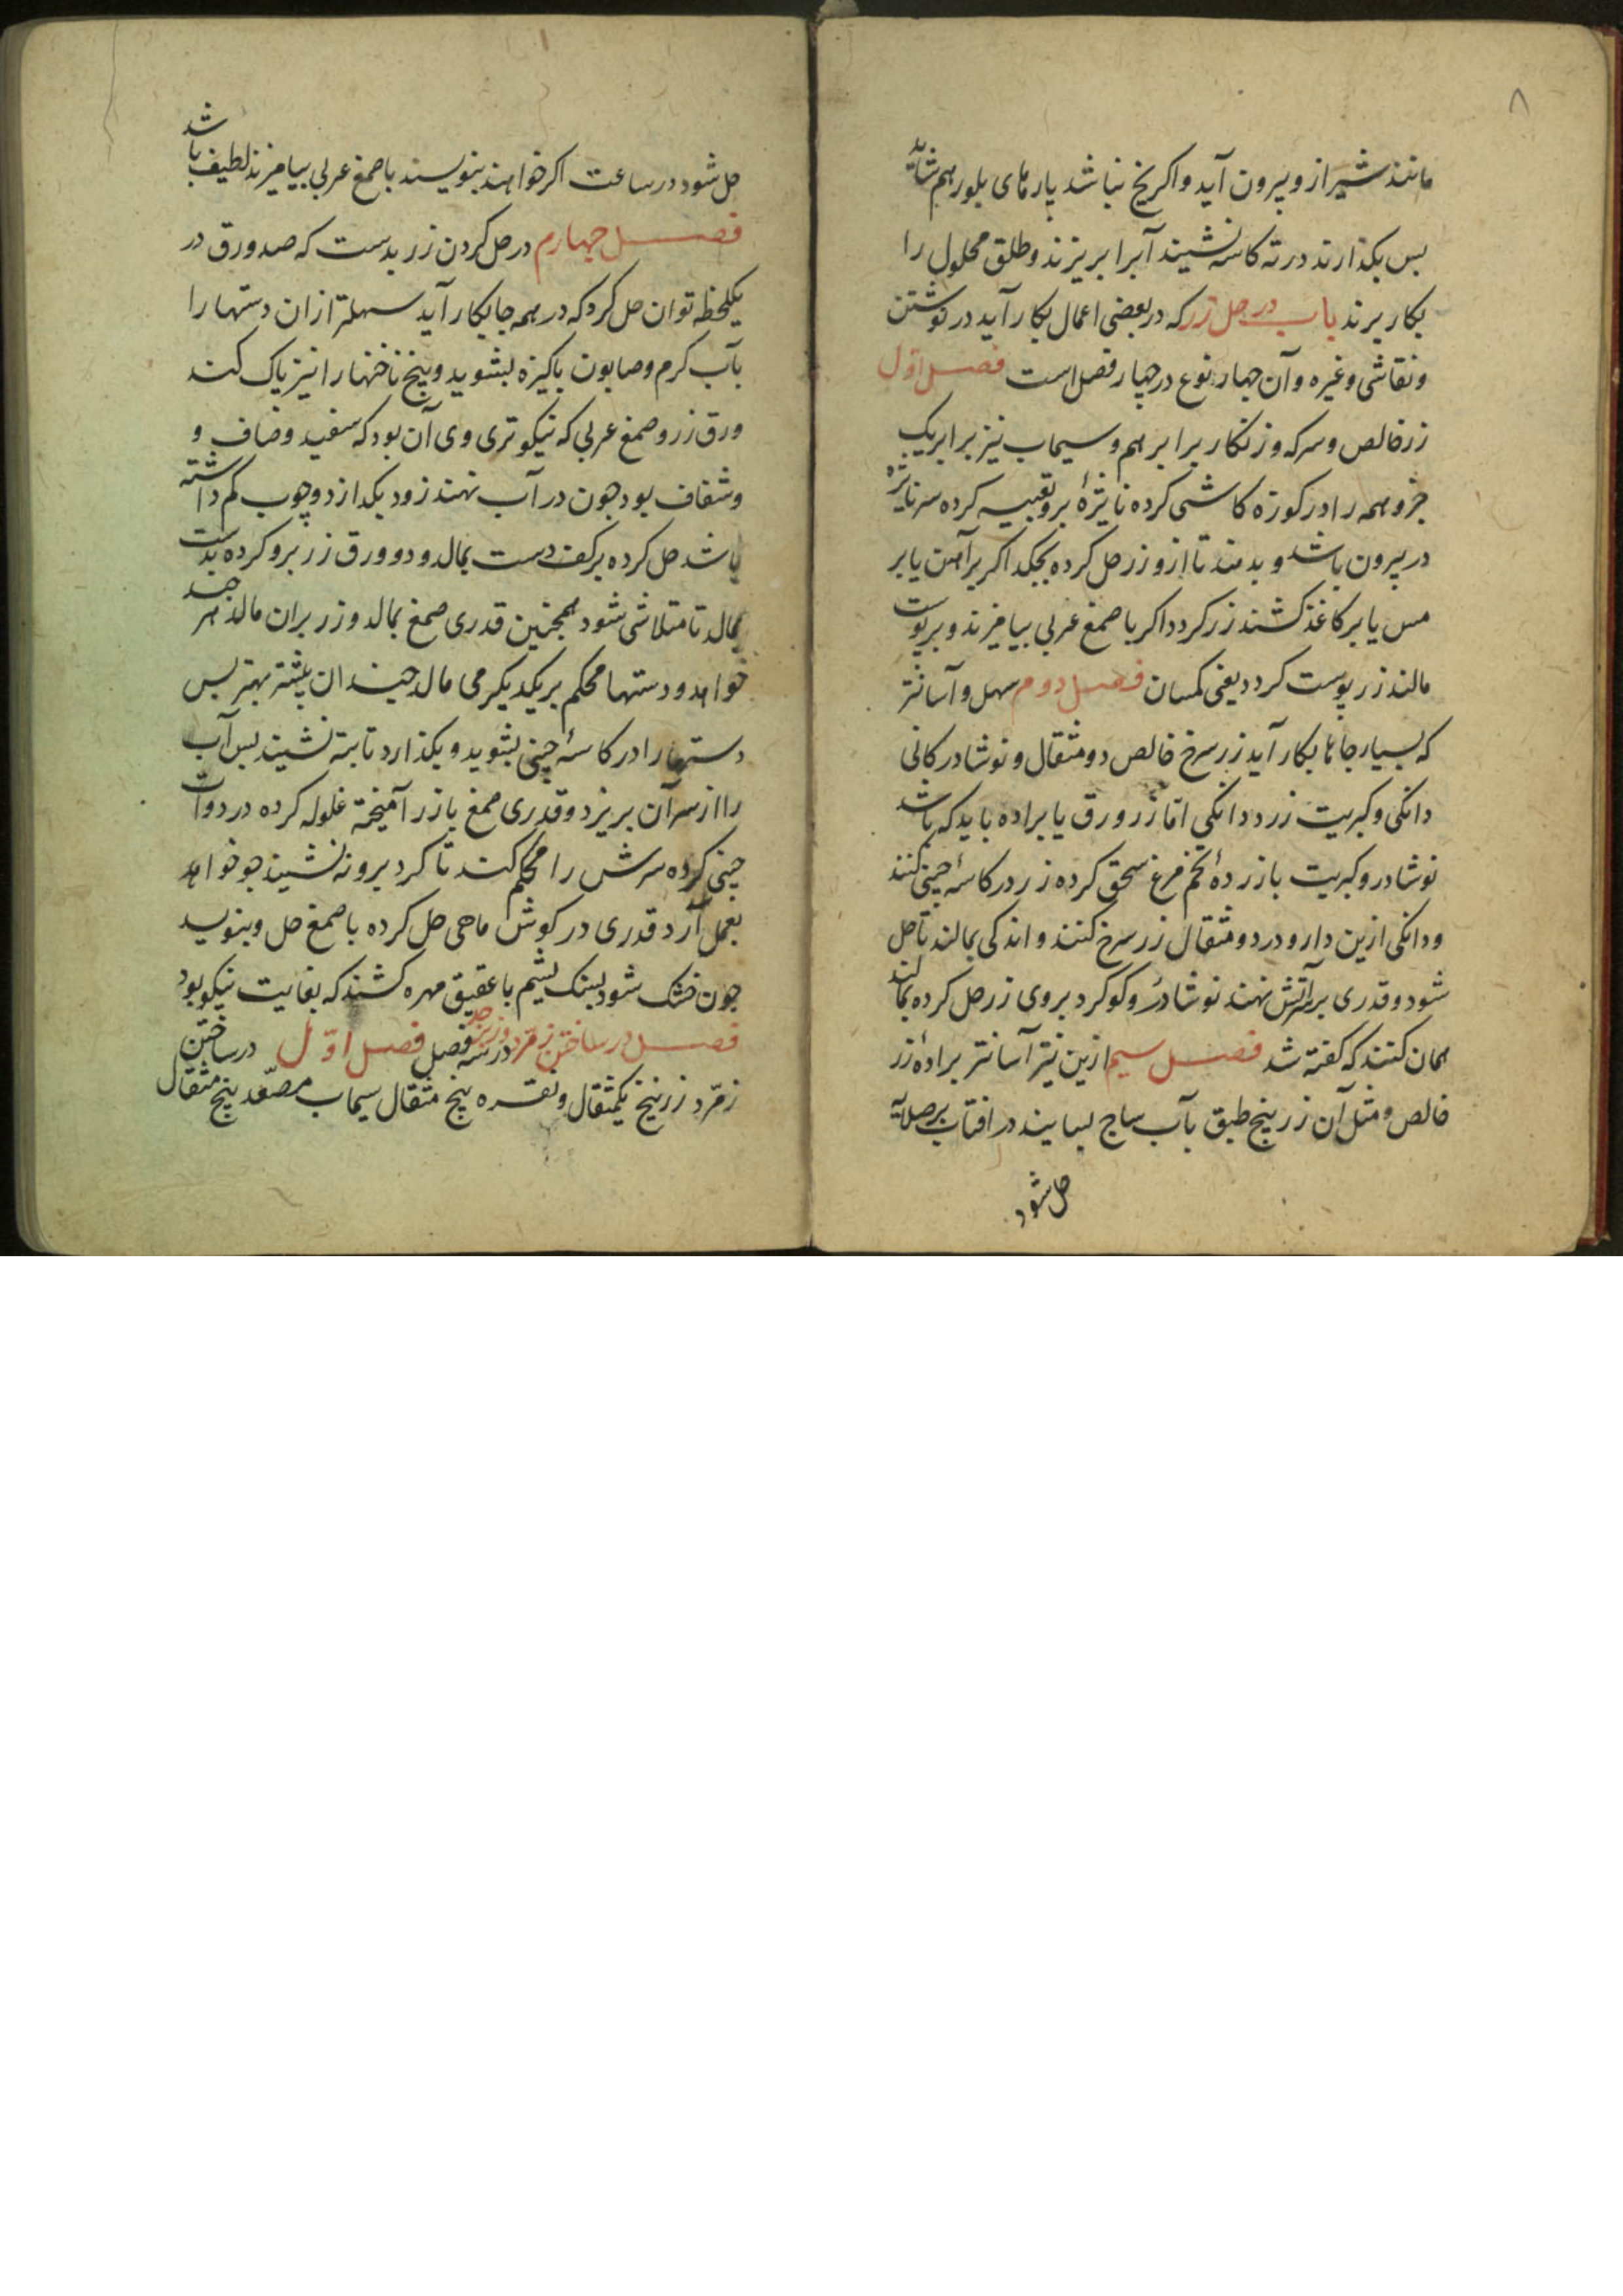 ۸
مانند شیر از و بیرون آید و اگر یخ نباشد پارهای بلور هم شاید
بس بکذارند در ته کاسه نشیند آبرا بریزند و طلق محلول را
بکار برند باب در حل زر که در بعضی اعمال بکار آید در نوشتن
و نقاشی و غیره و آن جهار نوع در جهار فصل است فصل اول
زر خالص و سرکه و زنکار برابر هم و سیماب نیز برابر یک
جزو همه را در کوزه کاشی کرده نایژهٔ برو تعبیه کرده سر نایژه
در بیرون باشد و بدمند تا ازو زر حل کرده بجکد اکر بر آهن یا بر
مس یا بر کاغذ کشند زر کردد اکر با صمغ عربی بیامیزند و بر پوست
مالند زر پوست کردد یعنی کمسان فصل دوم سهل و آسانتر
که بسیار جاها بکار آید زر سرخ خالص دو مثقال و نوشادر کانی
دانکی و کبریت زرد دانکی اما زر ورق یا براده باید که باشد
نوشادر و کبریت با زردهٔ تخم مرغ سحق کرده زر در کاسهٔ جینی کنند
و دانکی ازین دارو در دو مثقال زر سرخ کنند و اندکی بمالند تا حل
شود و قدری بر آتش نهند نوشادر و کوکرد بروی زر حل کرده بماند
همان کنند که کفته شد فصل سیم ازین نیز آسانتر برادهٔ زر
خالص و مثل آن زرنیخ طبق بآب ساج بسایند در افتاب بر صلایه
حل شود
حل شود در ساعت اکر خواهند بنویسند با صمغ عربی بیامیزند لطیف باشد
فصل جهارم در حل کردن زر بدست که صد ورق در
یکلحظه توان حل کرد که در همه جا بکار آید سهلتر ازان دستها را
بآب کرم و صابون باکیزه بشوید و بیخ ناخنها را نیز پاک کند
ورق زر و صمغ عربی که نیکوتری وی آن بود که سفید و صاف و
و شفاف بود جون در آب نهند زود بکدازد و جوب کم داشته
باشد حل کرده بر کف دست بمالد و دو ورق زر برو کرده بدست
بمالد تا متلاشی شود همجنین قدری صمغ بمالد و زر بران مالد هر جند
خواهد و دستها محکم بر یکدیکر می مالد جندان بیشتر بهتر بس
دستها را در کاسهٔ جینی بشوید و بکذارد تا بته نشیند بس آب
را از سر آن بریزد و قدری صمغ با زر آمیخته غلوله کرده در دوات
جینی کرده سرش را محکم کند تا کرد برو ننشیند جو خواهد
بعمل آرد قدری در کوش ماهی حل کرده با صمغ حل و بنوسد
جون خشک شود بسنک یشم یا عقیق مهره کشند که بغایت نیکو بود
فصل در ساختن زمرد و زبرجد در سه فصل فصل اول در ساختن
زمرد زرنیخ یکمثقال و نقره پنج مثقال سیماب مصعد پنج مثقال